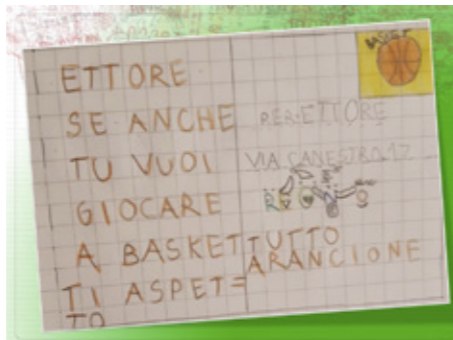 ETTORE
SE ANCHE
TU VUOI
GIOCARE
A BASKET
TI ASPET=
TO
BASKET
PER: ETTORE
VIA CANESTRO, 17
TUTTO
ARANCIONE